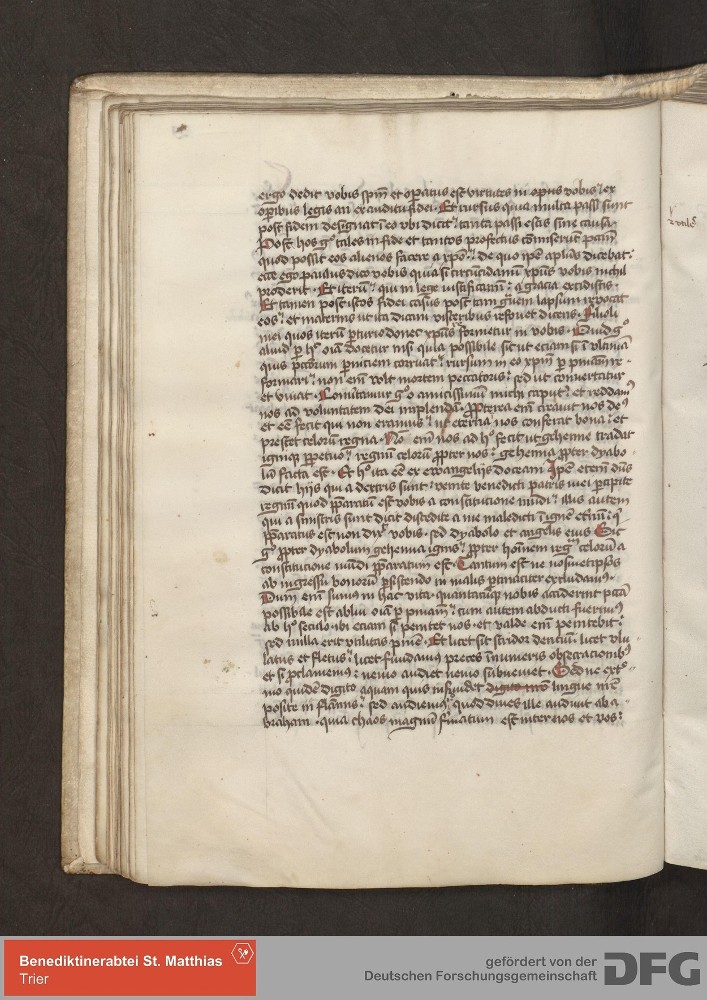 ergo dedit vobis spm̄ et operatus est virtutes in opus vobis ex
operibus legis an ex auditu fidei · Et rursus quia multa passi sunt
post fidem designat ī eo vbi dicit tanta passi estis sine causa ·
Post hos gͦ tales in fide et tantos profectus cōmiserūt pctm̄
quod possit eos alienos facere a xpō · de quo ip̄e apl̄us dicebat :
ecce ego paulus dico vobis quia si circūcidamī xpūs vobis nichil
proderit · Et iterū qui in lege iustificamī a gracia excidistis ·
Et tamen post istos fidei casus post tam gͣuem lapsum reuocat
eos et maternis vt ita dicam visceribus refouet dicens · Filioli
mei quos iterū parturio donec xpūs formetur in vobis · Quid gͦ
aliud p hͦ oīa docetur nisi quia possibile sit vt eciam si ī vltimā
quis pctōrum pniciem corruat rursum in eo xpm̄ p pnīam re-
formari non em̄ vult mortem peccatoris sed vt conuertatur
et viuat · Conuertamur gͦ o amicissimū michi caput et reddamꝰ
nos ad voluntatem dei implendā · propterea em̄ creauit nos deꝰ
et eē fecit qui non eramus vt eterna nos conferat bona et
prestet celorū regna · Nō em̄ nos ad hͦ fecit vt gehenne tradat
ignique perpetuo regnū celorū propter nos gehenna propter dyabo-
lū facta est · Et hͦ ita eē ex ewangelijs doceam Ip̄e etem̄ dn̄s
dicit hijs qui a dextris sunt venite benedicti patris mei percipite
regnū quod pparatū est vobis a constitucione mūdi illis autem
qui a sinistris sunt dicit discedite a me maledicti ī ignē etnū qͥ
pparatus est non dixͭ vobis · sed dyabolo et angelis eius Sic
gͦ propter dyabolum gehenna ignis propter hominem regͫ celorū a
constitucione mūdi pparatum est · Tantum est ne nosmetip̄sos
ab ingressu bonorū persistendo in malis pertinaciter excludamꝰ ·
Dum em̄ sumus in hac vita quantacūque nobis acciderint pctā
possibile est ablui oīa p pnīam cum autem abducti fuerimꝰ
ab hͦ seculo · ibi eciam si penitet nos · et valde em̄ penitebit
sed nulla erit vtilitas pnīe · Et licet sit stridor dencium licet vlu
latus et fletus licet fundamꝰ preces īnumeris obsecracionibꝰ
et si proclamemus nemo audiet nemo subueniet · Sed ne extͦ-
mo quidē digito aquam quis infundet digito nr̄o lingue nr̄e
posite in flāmis sed audiemꝰ quod diues ille audiuit ab a
braham · quia chaos magnū firmatum est inter nos et vos :
Benediktinerabtei St. Matthias
Trier
gefördert von der
Deutschen Forschungsgemeinschaft
DFG